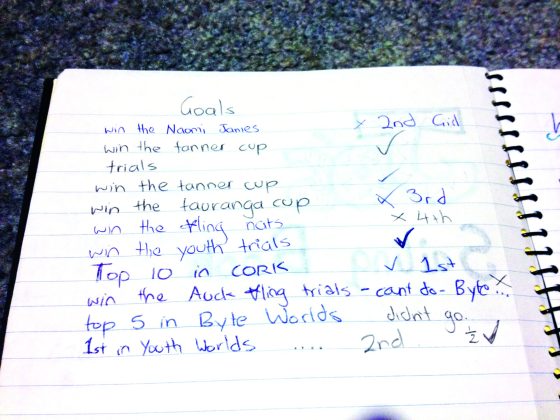 Goals
win the Naomi James x 2nd Girl
win the tanner cup ✓
trials
win the tanner cup ✓
win the tauranga cup x 3rd
win the ling nats x 4th
win the youth trials ✓
Top 10 in CORK ✓ 1st
win the Auck ling trials - cant do - Byte... x
top 5 in Byte Worlds didnt go.
1st in Youth Worlds .... 2nd ½ ✓